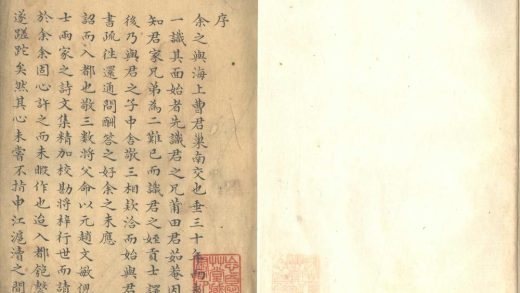 序
余之與海上曹君巢南交也垂三十年而
一識其面始者先識君之兄莆田君茹菴因
知君家兄弟為二難已而識君之姪貢士譯
後乃與君之子中舍敬三相欵洽而始與君
書疏往還通問酬答之好余之未應
詔而入都也敬三數將父命以元趙文敏倪
士兩家之詩文集精加校勘將梓行世而請
於余余固心許之而未暇作也迨入都匏繫
遂蹉跎矣然其心未嘗不申江滬之間